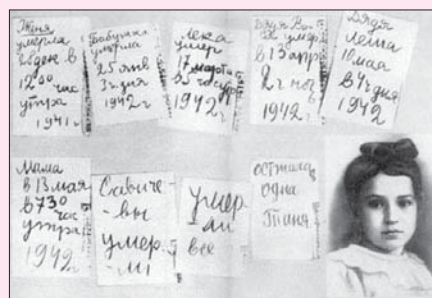 Женя
умерла
28 дек в
12 00 час
утра
1941 г
Бабушка
умерла
25 янв
3 ч дня
1942 г
Лека
умер
17 марта
в 5 час утр
1942 г
Дядя Ва
ся умер
в 13 апр
2 ч ноч
1942 г
Дядя
Леша
10 мая
в 4 ч дня
1942
Мама
в 13 мая
в 7 30
час
утра
1942 г
Савиче
-вы
умер
-ли
умер
-ли
все
осталась
одна
Таня